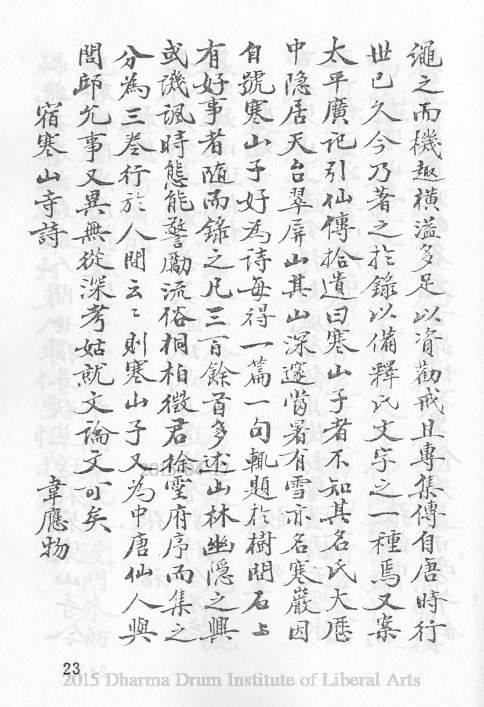 繩之而機趣橫溢多足以資勸戒且專集傳自唐時行
世已久今乃著之於錄以備釋氏文字之一種焉又案
太平廣記引仙傳拾遺曰寒山子者不知其名氏大厯
中隐居天台翠屏山其山深邃當暑有雪亦名寒巖因
自號寒山子好為詩每得一篇一句輒題於樹間石上
有好事者随而錄之凡三百餘首多述山林幽隐之興
或譏諷時態能警勵流俗桐柏徵君徐霊府序而集之
分為三巻行於人間云〻則寒山子又為中唐仙人與
閭邱允事又異無從深考姑就文論文可矣
宿寒山寺詩 韋應物
23
2015 Dharma Drum Institute of Liberal Arts